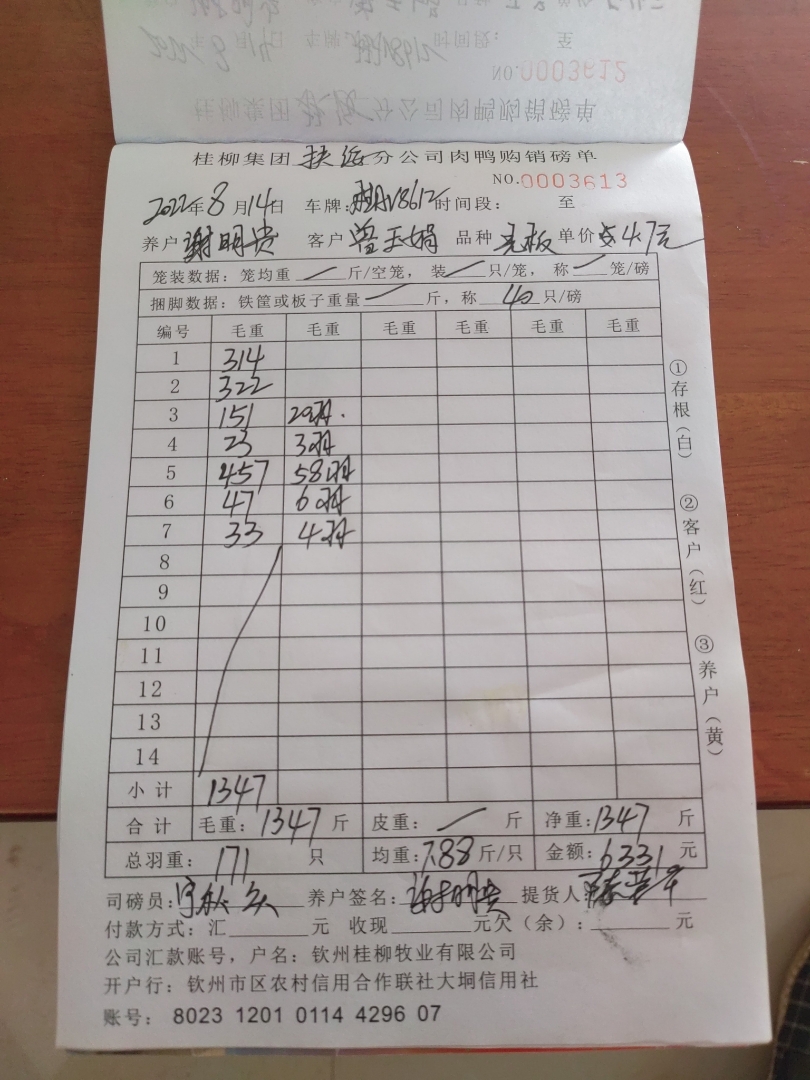 NO.0003612
桂柳集团 分公司肉鸭购销磅单
桂柳集团 扶绥 分公司肉鸭购销磅单
NO.0003613
2022年8月14日 车牌: 时间段: 至
养户 谢明贵 客户 曾玉娟 品种 单价 4.7元
笼装数据: 笼均重 / 斤/空笼, 装 / 只/笼, 称 / 笼/磅
捆脚数据: 铁筐或板子重量 / 斤, 称 40 只/磅
编号 毛重 毛重 毛重 毛重 毛重 毛重
1 314
2 322
3 151 20羽.
4 23 3羽
5 457 58羽
6 47 6羽
7 33 4羽
8
9
10
11
12
13
14
小计 1347
合计 毛重: 1347 斤 皮重: / 斤 净重: 1347 斤
总羽重: 171 只 均重: 7.88 斤/只 金额: 6331 元
司磅员: 养户签名: 谢明贵 提货人:
付款方式: 汇 元 收现 元欠(余): 元
公司汇款账号, 户名: 钦州桂柳牧业有限公司
开户行: 钦州市区农村信用合作联社大垌信用社
账号: 8023 1201 0114 4296 07
①存根(白)
②客户(红)
③养户(黄)